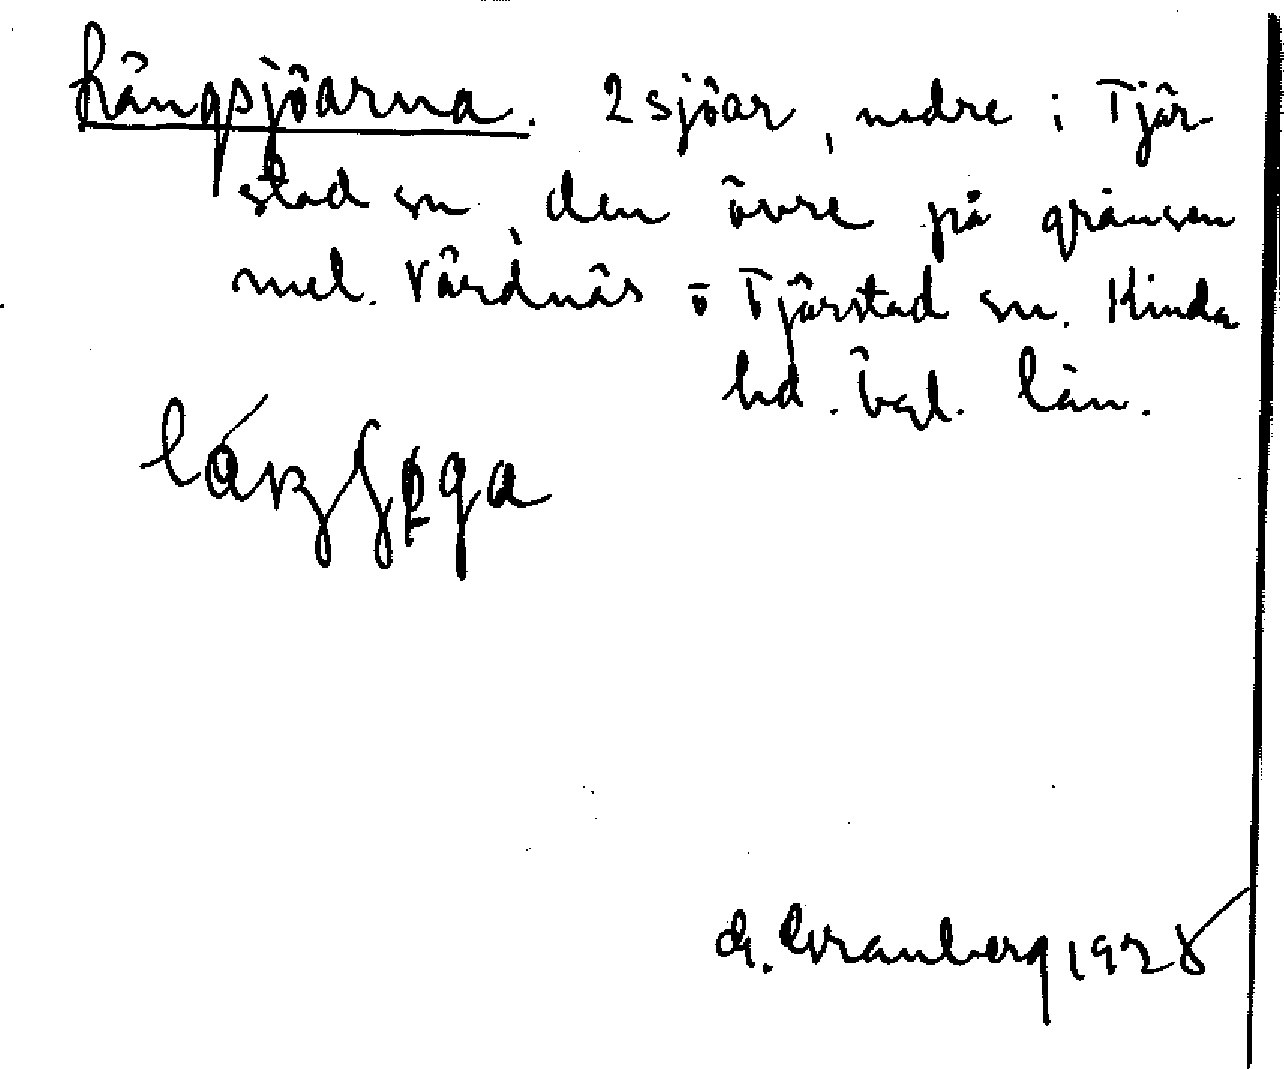 Långsjöarna. 2 sjöar, nedre i Tjär-
stad sn, den övre på gränsen
mel. Vårdnäs o Tjärstad sn. Kinda
hd. Ögl. län.
G. Granberg 1928